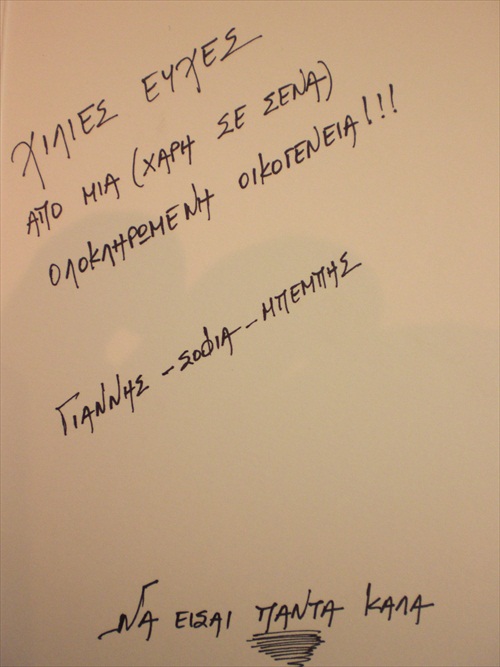 ΧΙΛΙΕΣ ΕΥΧΕΣ
ΑΠΟ ΜΙΑ (ΧΑΡΗ ΣΕ ΣΕΝΑ)
ΟΛΟΚΛΗΡΩΜΕΝΗ ΟΙΚΟΓΕΝΕΙΑ!!!
ΓΙΑΝΝΗΣ - ΣΟΦΙΑ - ΜΠΕΜΠΗΣ
ΝΑ ΕΙΣΑΙ ΠΑΝΤΑ ΚΑΛΑ